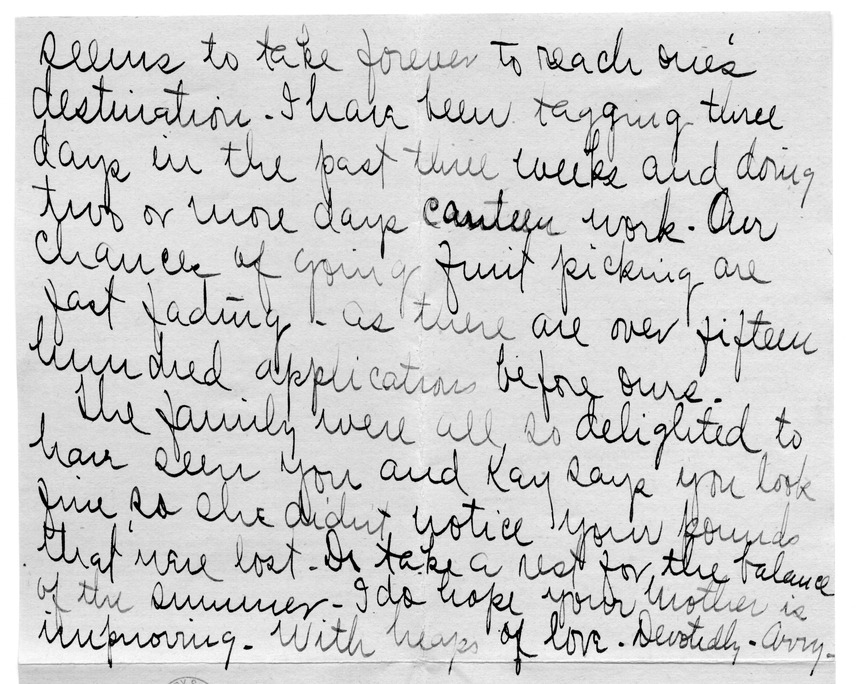 seems to take forever to reach one's
destination - I have been tagging three
days in the past three weeks and doing
two or more days canteen work - Our
chances of going fruit picking are
fast fading - as there are over fifteen
hundred applications before ours.
The family were all so delighted to
have seen you and Kay says you look
fine, so she didn't notice your pounds
that were lost - Do take a rest for the balance
of the summer - I do hope your mother is
improving - With heaps of love - Devotedly -